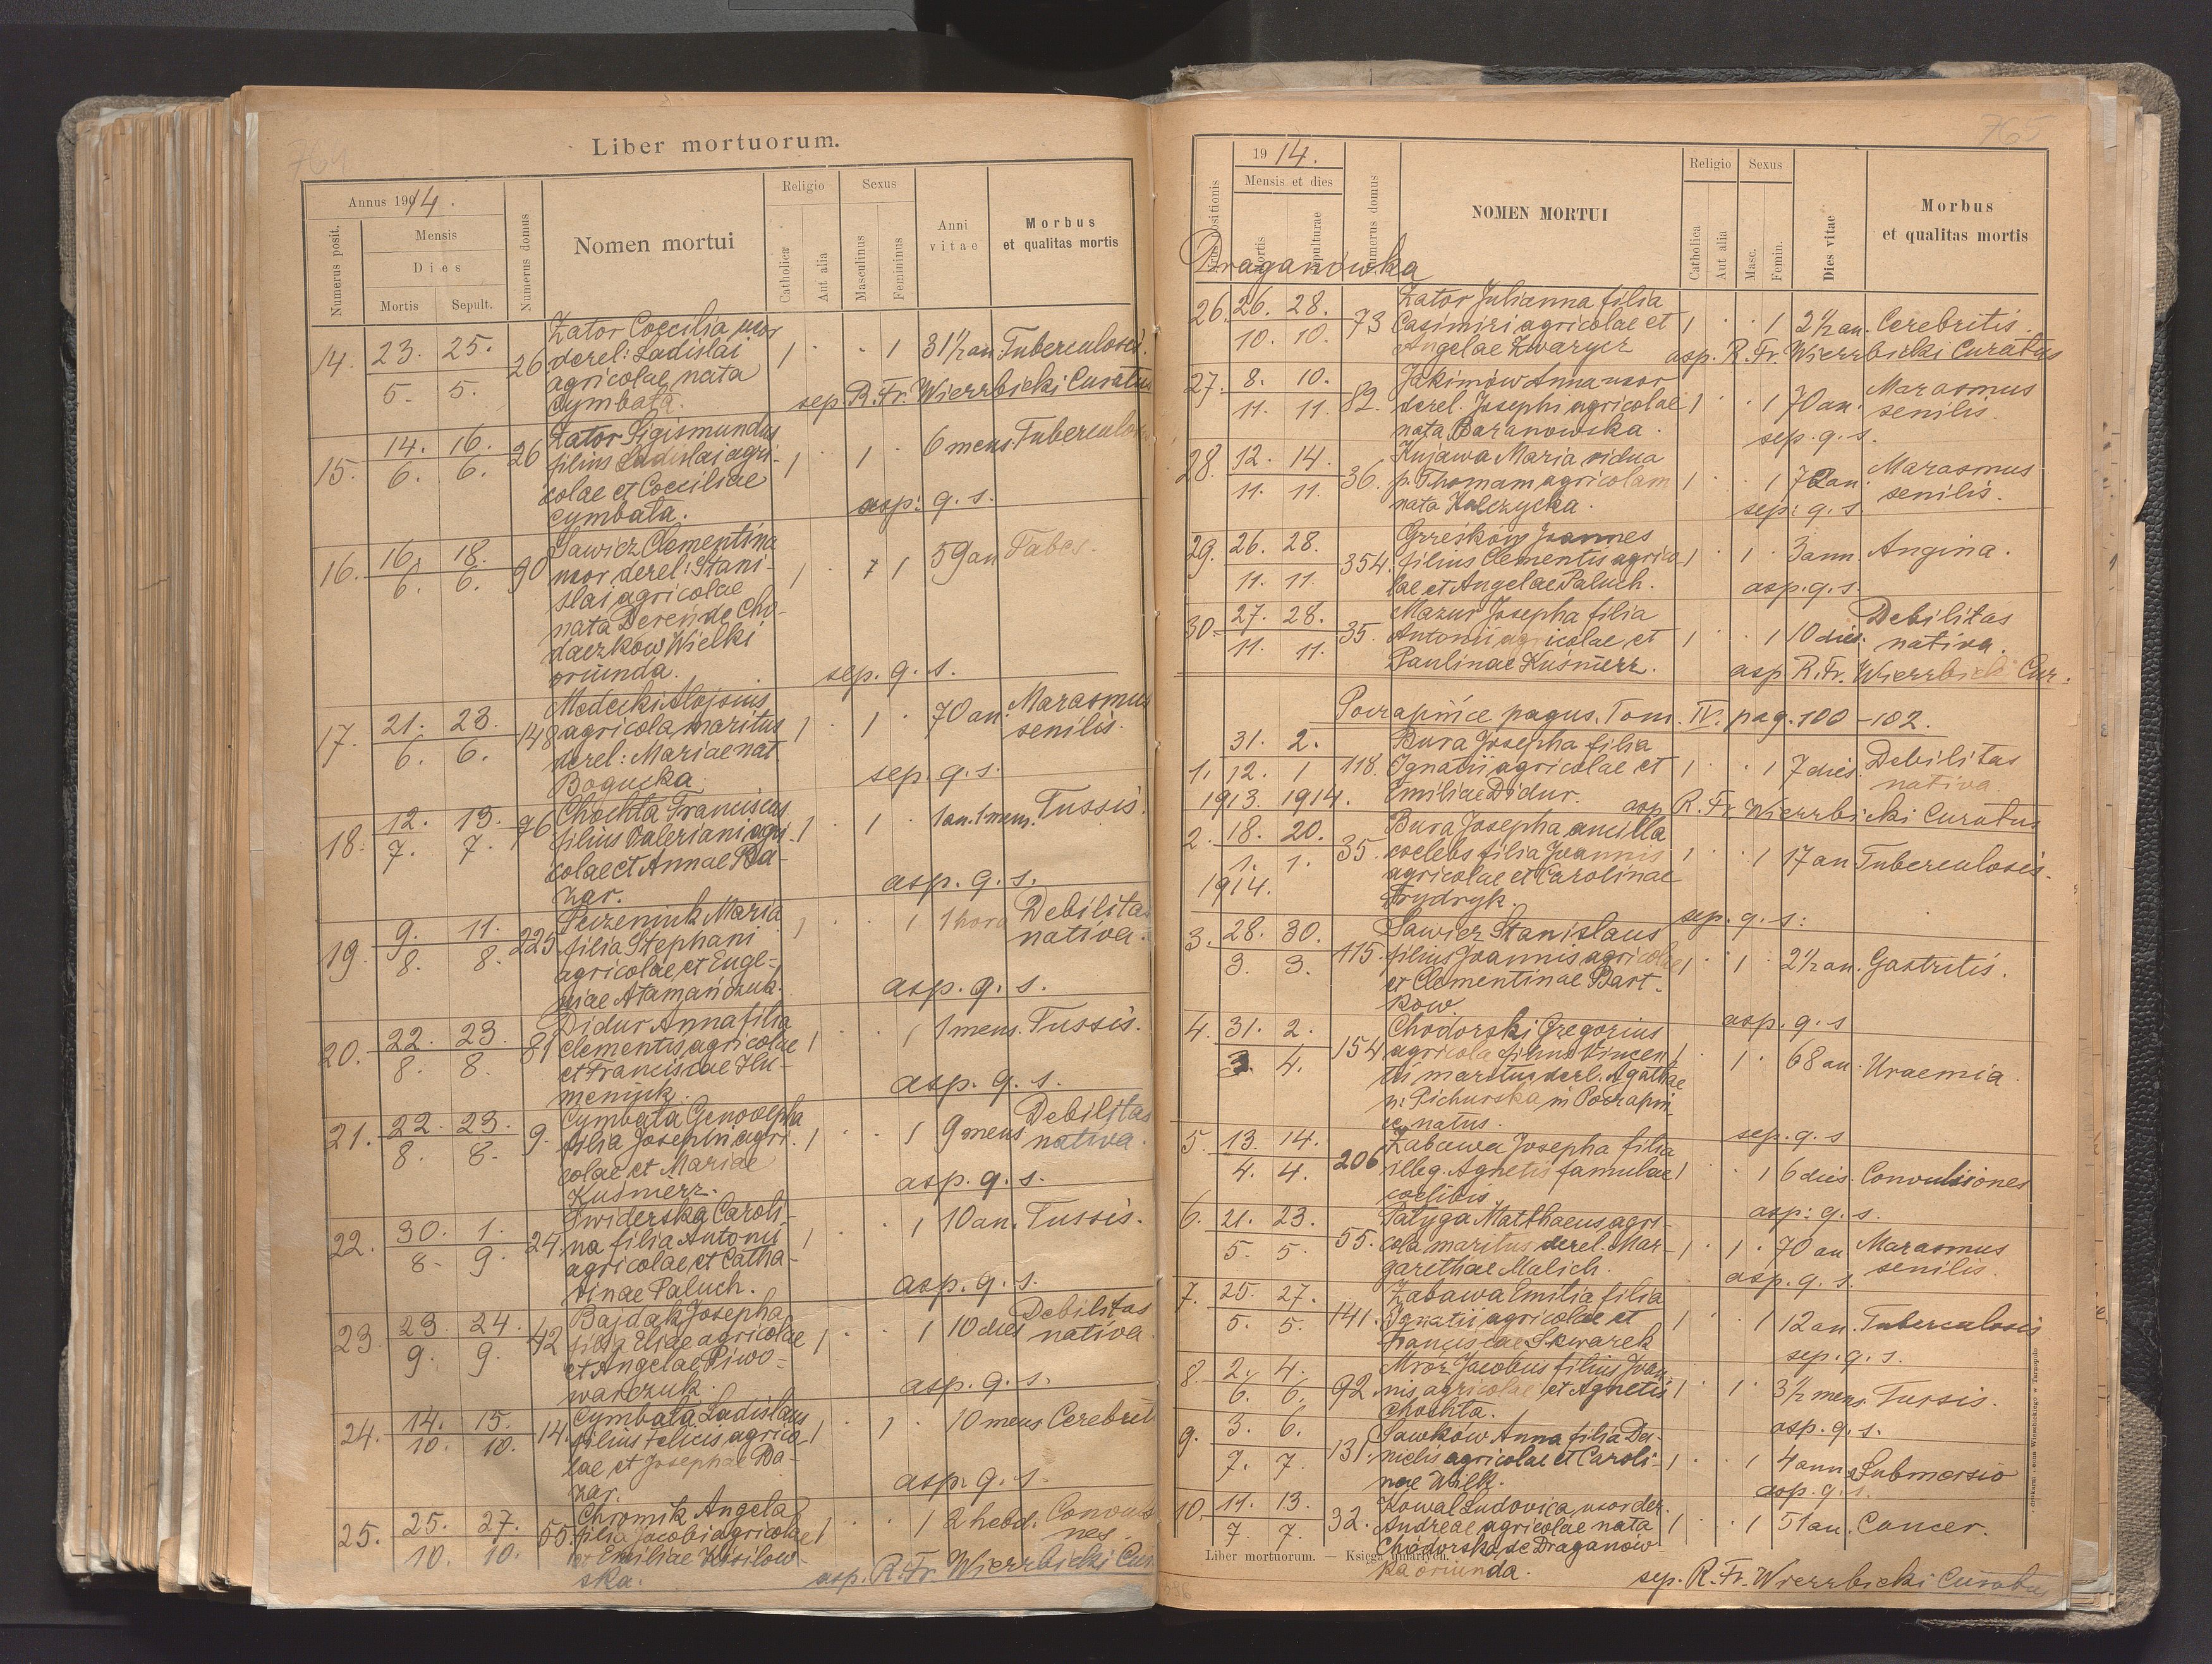 764
Liber mortuorum.
Annus 1914.
Numerus posit.
Mensis
Dies
Mortis
Sepult.
Numerus domus
Nomen mortui
Religio
Catholica
Aut alia
Sexus
Masculinus
Femininus
Anni vitae
Morbus
et qualitas mortis
14. 23. 25. 26 Zator Coecilia uxor 1 1 31 1/2 an Tuberculosis.
5. 5. derel: Ladislai
agricolae nata
Cymbała.
sep. R. Fr. Wierzbicki Curatus
15. 14. 16. 26 Zator Sigismundus 1 1 6 mens. Tuberculosis
6. 6. filius Ladislai agri-
colae et Coeciliae
Cymbała.
asp: q. s.
16. 16. 18. 90 Sawicz Clementina 1 1 59 an Tabes.
6. 6. uxor derel: Stani-
slai agricolae
nata Dereń de Cho-
daczków Wielki
oriunda.
sep. q. s.
17. 21. 23. 148 Modecki Aloisius 1 1 70 an. Marasmus
6. 6. agricola maritus senilis.
derel: Mariae nat.
Bogucka.
sep. q. s.
18. 12. 13. 76 Chochta Franciscus 1 1 1 an. 1 mens. Tussis.
7. 7. filius Valeriani agri-
colae et Annae Ba-
zar.
asp. q. s.
19. 9. 11. 225 Maria 1 1 1 hora Debilitas
8. 8. filia Stephani nativa.
agricolae et Euge-
niae Atamańczuk.
asp. q. s.
20. 22. 23. 81 Didur Anna filia 1 1 1 mens. Tussis.
8. 8. Clementis agricolae
et Franciscae Hu-
meniuk.
asp. q. s.
21. 22. 23. 9. Cymbała Genovepha 1 1 9 mens Debilitas
8. 8. filia Josephi agri- nativa.
colae et Mariae
Kuśmierz.
asp. q. s.
22. 30. 1. 24. Świderska Caroli- 1 1 10 an. Tussis.
8. 9. na filia Antonii
agricolae et Catha-
rinae Paluch.
asp. q. s.
23. 23. 24. 42 Bajdak Josepha 1 1 10 dies Debilitas
9. 9. filia Eliae agricolae nativa.
et Angelae Piwo-
warczuk.
asp. q. s.
24. 14. 15. 14. Cymbała Ladislaus 1 1 10 mens Cerebrit
10. 10. filius Felicis agrico-
lae et Josephae Ba-
zar.
asp. q. s.
25. 25. 27. 55. Chromik Angela 1 1 2 hebd. Convuls
10. 10. filia Jacobi agricolae nes.
et Emiliae Kisilow-
ska.
asp. R. Fr. Wierzbicki Cur
765
1914.
Mensis et dies
Mortis
Sepulturae
Numerus domus
NOMEN MORTUI
Religio
Catholica
Aut alia
Sexus
Masc.
Femin.
Dies vitae
Morbus
et qualitas mortis
Draganówka
26. 26. 28. 73 Zator Julianna filia 1 1 2 1/2 an. Cerebritis.
10. 10. Casimiri agricolae et
Angelae Zwarycz
asp. R. Fr. Wierzbicki Curatus
27. 8. 10. 82. Jakimów Anna uxor 1 1 70 an. Marasmus
11. 11. derel. Josephi agricolae senilis.
nata Baranowska.
sep. q. s.
28. 12. 14. 36. Kujawa Maria vidua 1 1 72 an. Marasmus
11. 11. p. Thomam agricolam senilis.
nata Kulczycka.
sep. q. s.
29. 26. 28. 354. Grześków Joannes 1 1 3 ann. Angina.
11. 11. filius Clementis agrico-
lae et Angelae Paluch.
asp. q. s.
30. 27. 28. 35. Mazur Josepha filia 1 1 10 dies. Debilitas
11. 11. Antonii agricolae et nativa.
Paulinae Kuśmierz.
asp R. Fr. Wierzbicki Cur.
Poczapińce pagus. Tom. IV. pag. 100-102.
1. 31. 2. 118. Bura Josepha filia 1 1 7 dies. Debilitas
12. 1 Ignatii agricolae et nativa.
1913. 1914. Emiliae Didur.
asp R. Fr Wierzbicki Curatus
2. 18. 20. 35. Bura Josepha ancilla 1 1 17 an Tuberculosis.
1. 1. coelebs filia Joannis
1914. agricolae et Carolinae
Frydryk.
sep. q. s.
3. 28. 30. 115. Sawicz Stanislaus 1 1 2 1/2 an. Gastritis.
3. 3. filius Joannis agricolae
et Clementinae Bart-
ków.
asp. q. s
4. 31. 2. 154 Chodorski Gregorius 1 1 68 an. Uraemia.
3. 4. agricola filius Vincen-
tii maritus derel. Agathae
n. Pichurska in Poczapiń-
ce natus.
sep. q. s
5. 13. 14. 206 Zabawa Josepha filia 1 1 6 dies. Convulsiones
4. 4. illeg. Agnetis famulae
coelibis.
asp: q. s.
6. 21. 23. 55. Pałyga Matthaeus agri- 1 1 70 an Marasmus
5. 5. cola maritus derel. Mar- senilis.
garethae Malich.
asp. q. s.
7. 25. 27. 141. Zabawa Emilia filia 1 1 12 an. Tuberculosis
5. 5. Ignatii agricolae et
Franciscae Skwarek
sep. q. s.
8. 2. 4. 92. Mróz Jacobus filius Joan- 1 1 3 1/2 mens. Tussis.
6. 6. nis agricolae et Agnetis
Chochta.
asp. q. s.
9. 3. 6. 131. Sawków Anna filia Da- 1 1 4 ann. Submersio
7. 7 nielis agricolae et Caroli-
nae Wilk.
asp. q. s.
10. 11. 13. 32. Kowal Ludovica uxor der. 1 1 51 an. Cancer.
7. 7. Andreae agricolae nata
Chodorska de Draganów-
ka oriunda.
Liber mortuorum. — Księga umarłych.
sep. R. Fr. Wierzbicki Curatus